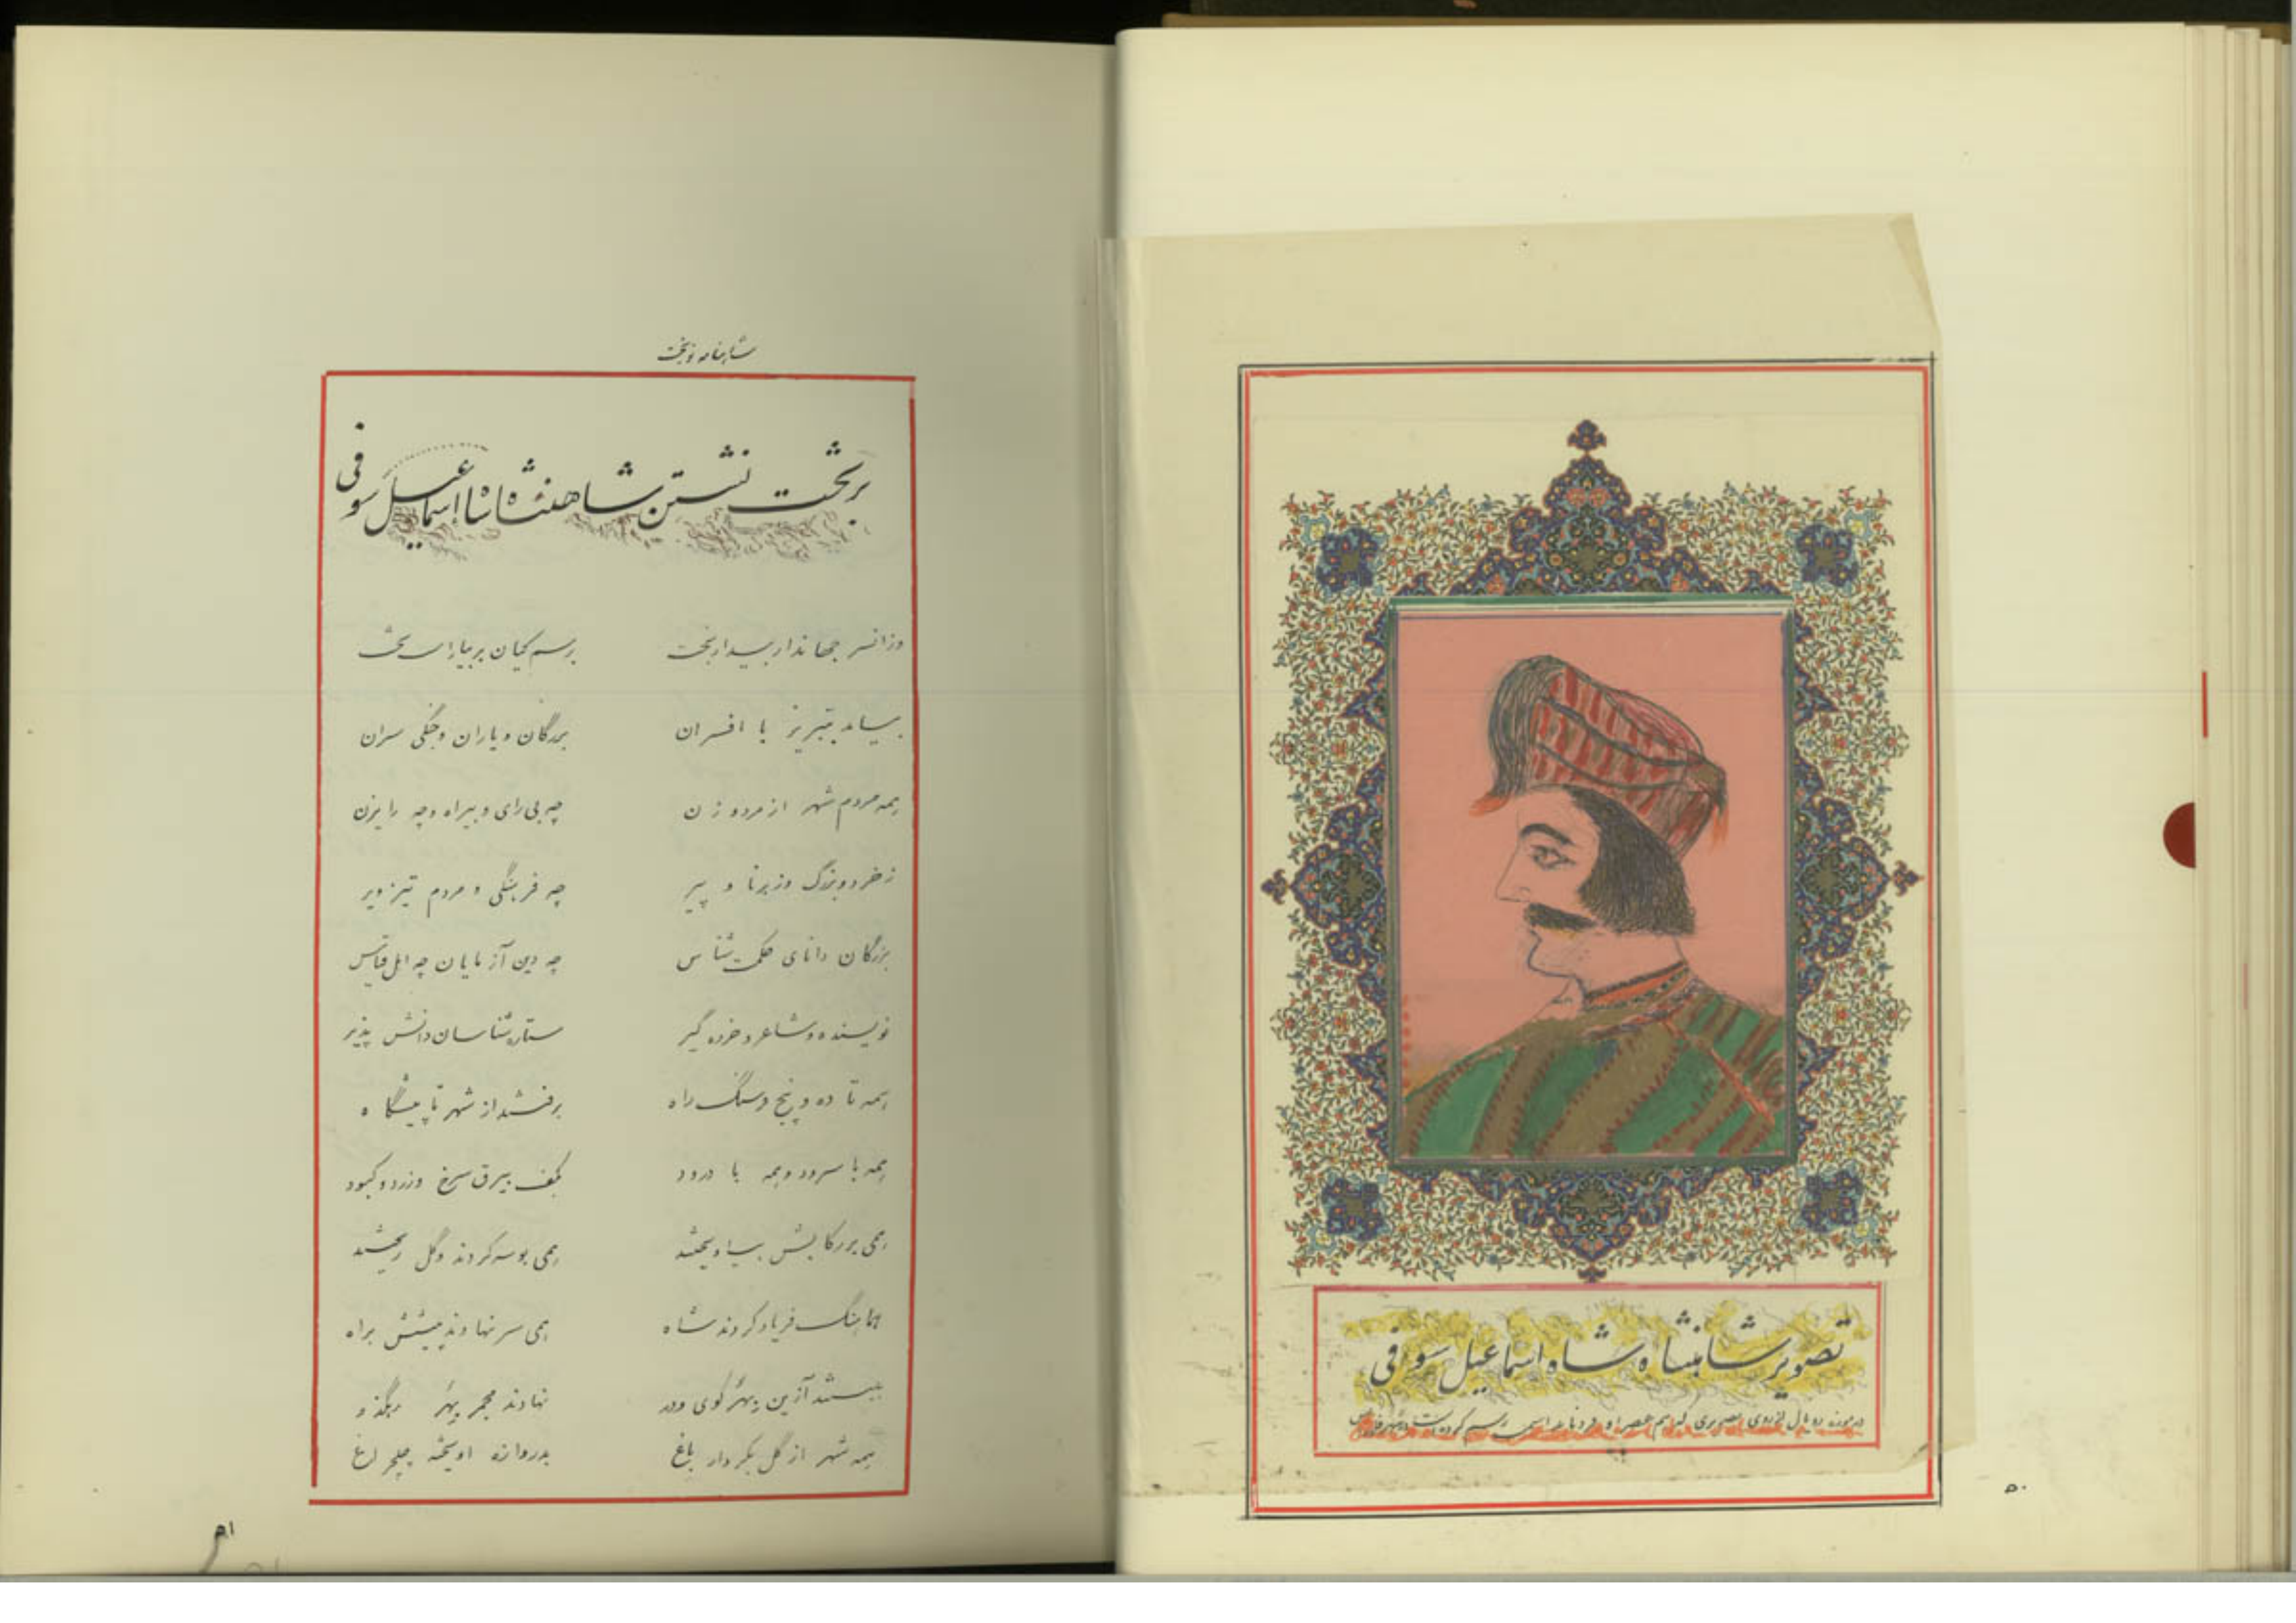 تصویر شاهنشاه شاه اسماعیل سوفی
در موزه رویال از روی تصویری که هم عصر او رسم کرده است
۵۰
شاهنامه نوبخت
بر تخت نشستن شاهنشاه شاه اسماعیل سوفی
وزانسر جهاندار بیدار بخت برسم کیان بر بیاراست تخت
بیامد بتبریز با افسران بزرگان و یاران و جنگی سران
همه مردم شهر از مرد و زن چه بی رای و بیراه و چه رایزن
ز خرد و بزرگ و ز برنا و پیر چه فرهنگی و مردم تیز ویر
بزرگان دانای حکمت شناس چه دین آزمایان چه اهل قیاس
نویسنده و شاعر و خرده گیر ستاره شناسان دانش پذیر
همه تا ده و پنج فرسنگ راه برفتند از شهر تا پیشگاه
همه با سرود و همه با درود بکف بیرق سرخ و زرد و کبود
همی بر رکابش بیاویختند همی بوسه کردند و گل ریختند
هماهنگ فریاد کردند شاه همی سر نهادند پیشش براه
ببستند آزین بهر کوی و در نهادند مجمر بهر رهگذر
همه شهر از گل بکردار باغ بدروازه آویخته چلچراغ
۵۱